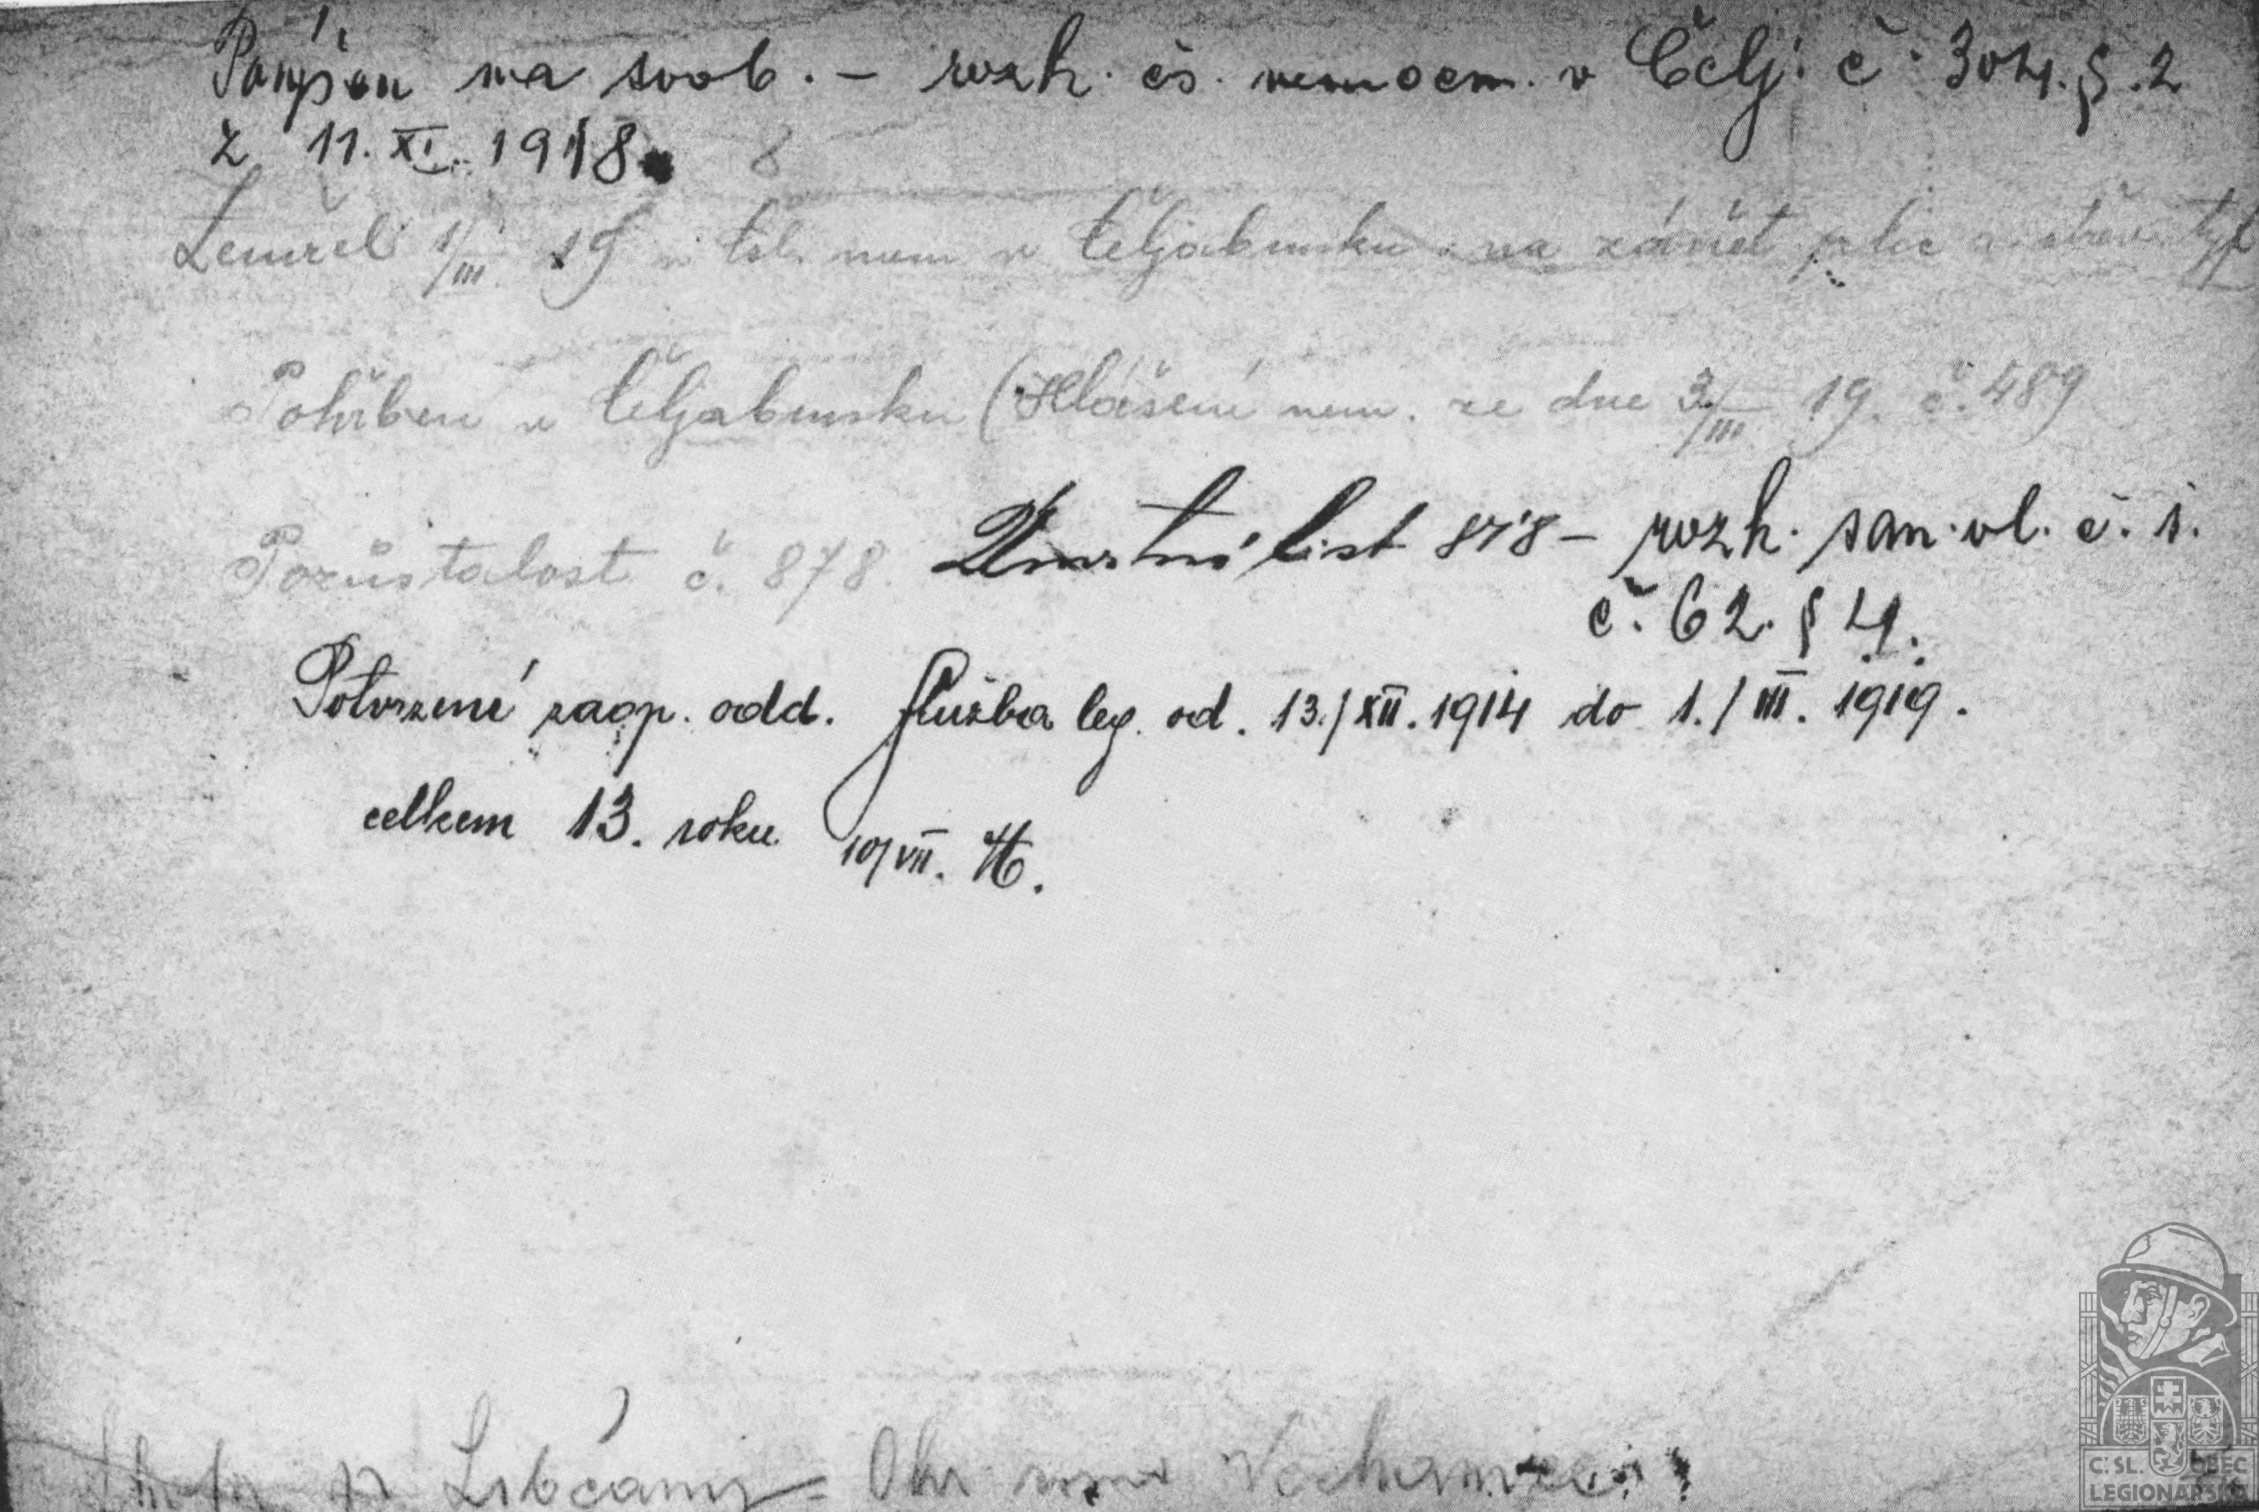 Povýšen na svob. – rozh. čs. nemocn. v Čelj. č. 304. § .2
z 11. XI. 1918. 8
Zemřel 1/III 19 v nem v Čeljabinsku na zánět plic a tyf
Pohřben v Čeljabinsku (Hlášení nem. ze dne 3/III 19. č. 489
Pozůstalost č. 878. Úmrtní list 878 – rozh. san. vl. č. 1.
č. 62. § 4.
Potvrzení zaop. odd. služba leg. od. 13./XII. 1914 do 1./III. 1919.
celkem 13. roku 10/VII. H.
p Libčany = Okr
Č. SL. OBEC
LEGIONÁŘSKÁ